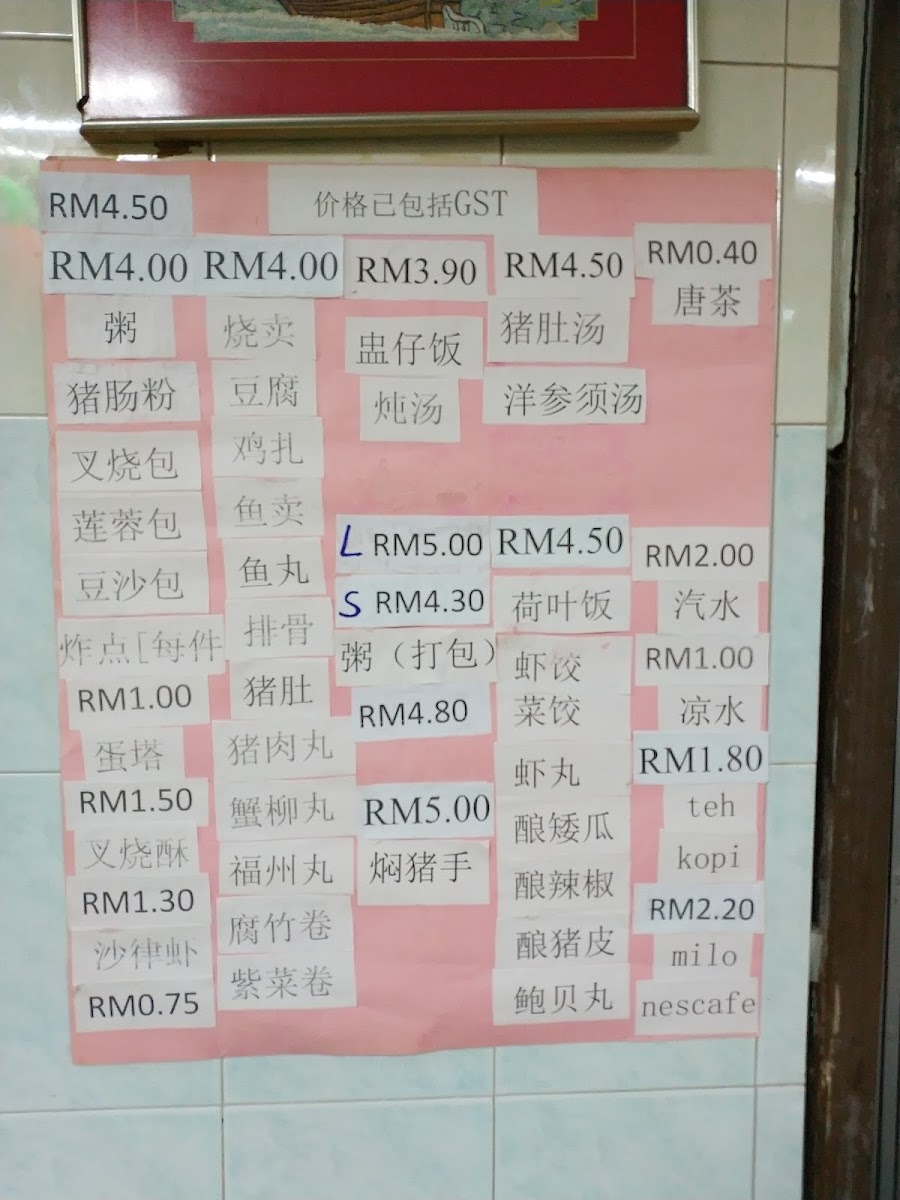 价格已包括GST
RM4.50
RM4.00
粥
猪肠粉
叉烧包
莲蓉包
豆沙包
炸点[每件
RM1.00
蛋塔
RM1.50
叉烧酥
RM1.30
沙律虾
RM0.75
RM4.00
烧卖
豆腐
鸡扎
鱼卖
鱼丸
排骨
猪肚
猪肉丸
蟹柳丸
福州丸
腐竹卷
紫菜卷
RM3.90
盅仔饭
炖汤
L RM5.00
S RM4.30
粥（打包）
RM4.80
RM5.00
焖猪手
RM4.50
猪肚汤
洋参须汤
RM4.50
荷叶饭
虾饺
菜饺
虾丸
酿矮瓜
酿辣椒
酿猪皮
鲍贝丸
RM0.40
唐茶
RM2.00
汽水
RM1.00
凉水
RM1.80
teh
kopi
RM2.20
milo
nescafe